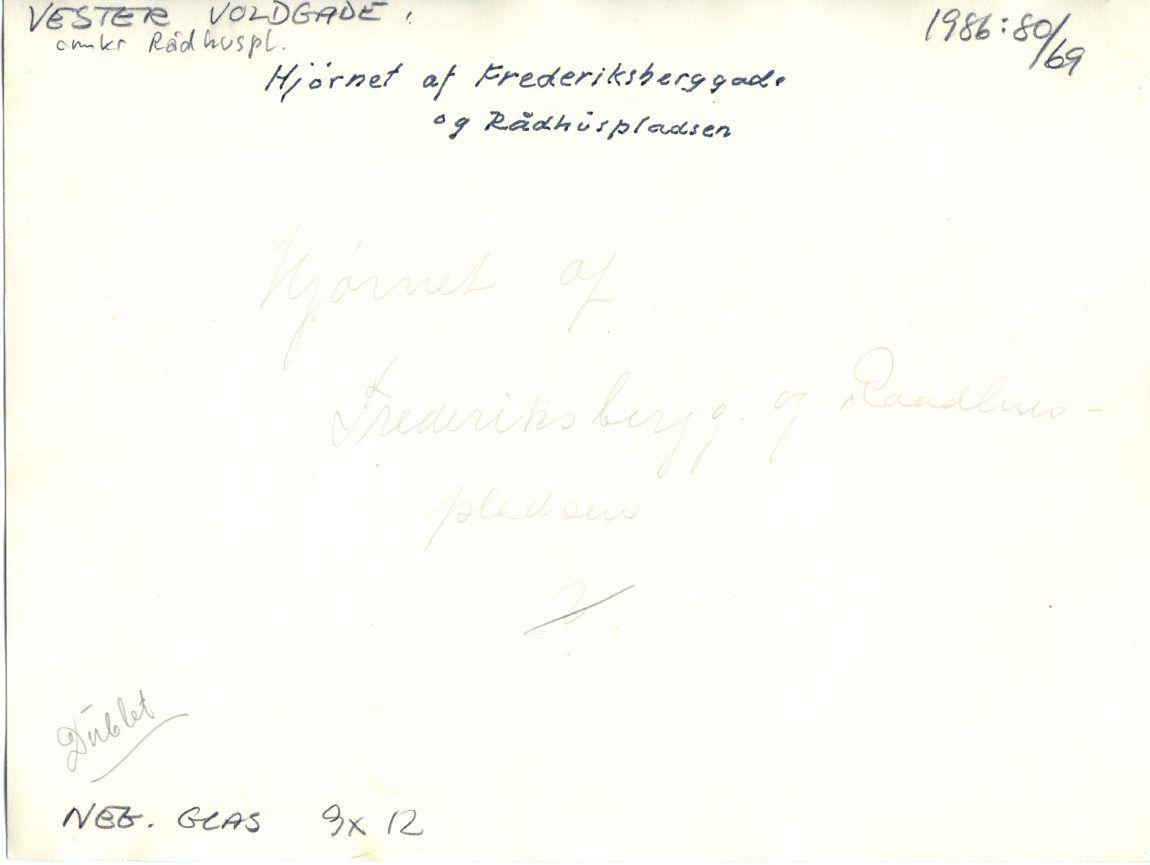 VESTER VOLDGADE.
omkr Rådhuspl.
1986:80/69
Hjørnet af Frederiksberggade
og Rådhuspladsen
Hjørnet af
Frederiksbergg. og Raadhus-
pladsen
Dublet
NEG. GLAS 9x12